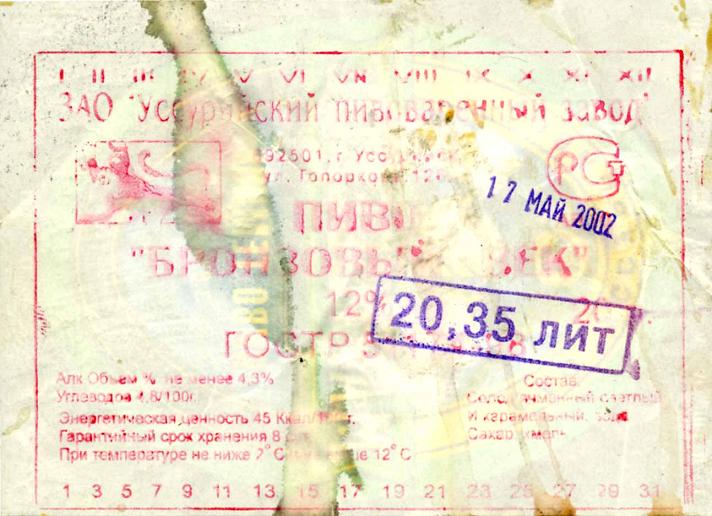 I II III IV V VI VII VIII IX X XI XII
ЗАО "Уссурийский пивоваренный завод"
692501, г. Уссурийск
ул. Топоркова, 12
РСТ
17 МАЙ 2002
ПИВО
"БРОНЗОВЫЙ ВЕК"
12%
20,35 ЛИТ
ГОСТ Р 51174-98
Алк Объем % не менее 4,3%
Углеводов 4,8/100г.
Энергетическая ценность 45 Ккал/100г.
Гарантийный срок хранения 8 сут.
При температуре не ниже 2°С и не выше 12°С
Состав:
Солод ячменный светлый
и карамельный, вода
Сахар, хмель
1 3 5 7 9 11 13 15 17 19 21 23 25 27 29 31